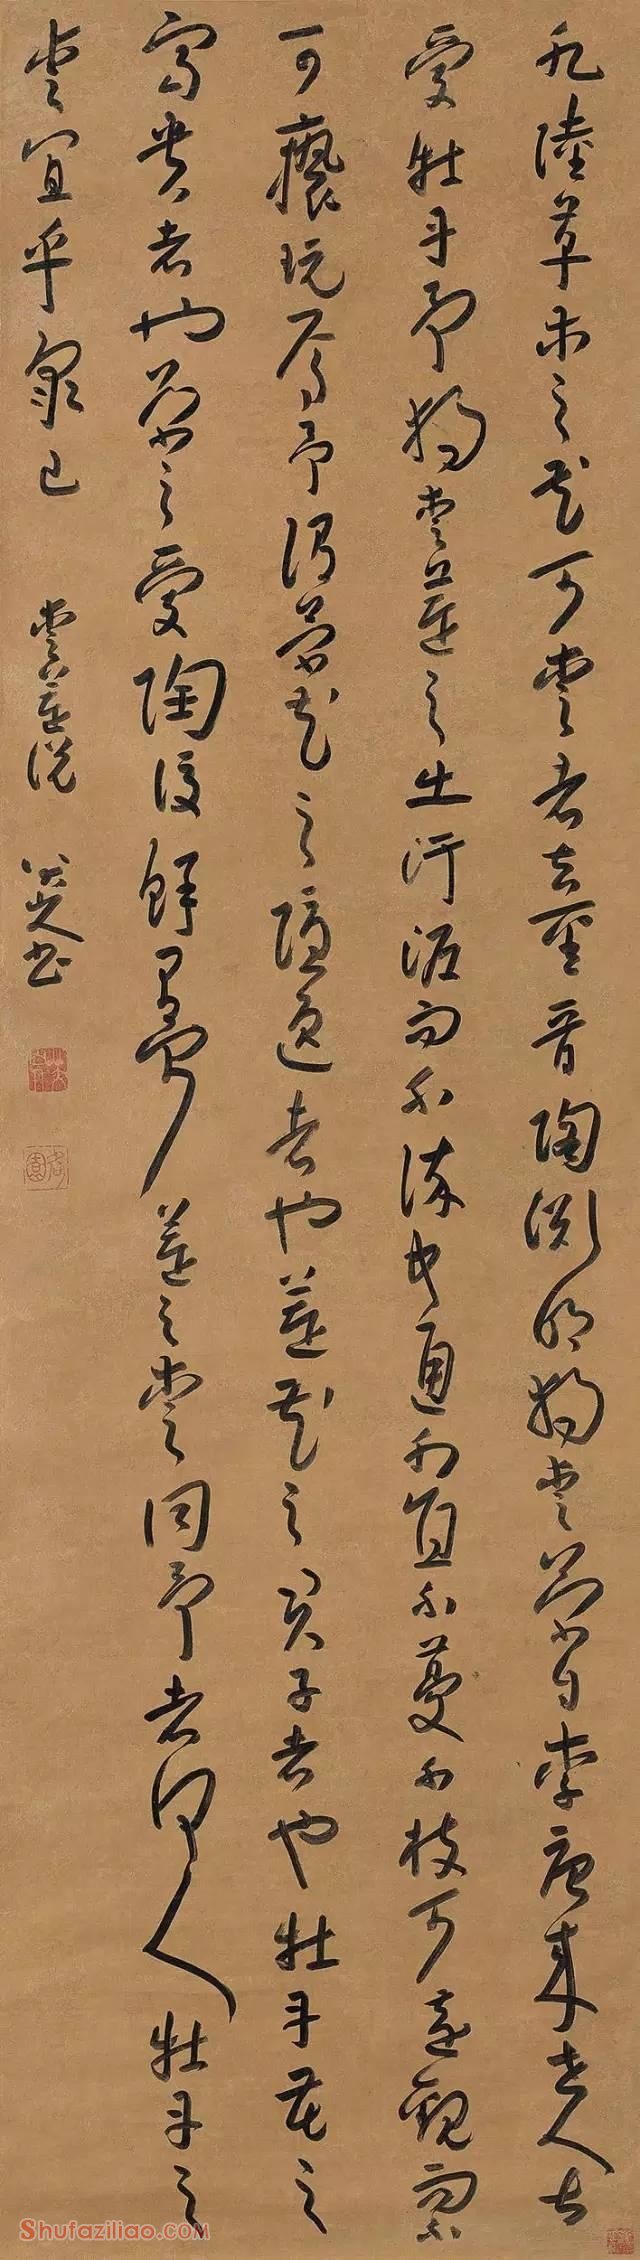 水陸草木之花可愛者甚蕃晉陶淵明獨愛菊自李唐來世人甚
愛牡丹予獨愛蓮之出汙泥而不染中通外直不蔓不枝可遠觀而不
可褻玩焉予謂菊花之隱逸者也蓮花之君子者也牡丹花之
富貴者也菊之愛陶後鮮有聞蓮之愛同予者何人牡丹之
愛宜乎衆已 愛蓮說 八大山人書
Shufaziliao.com